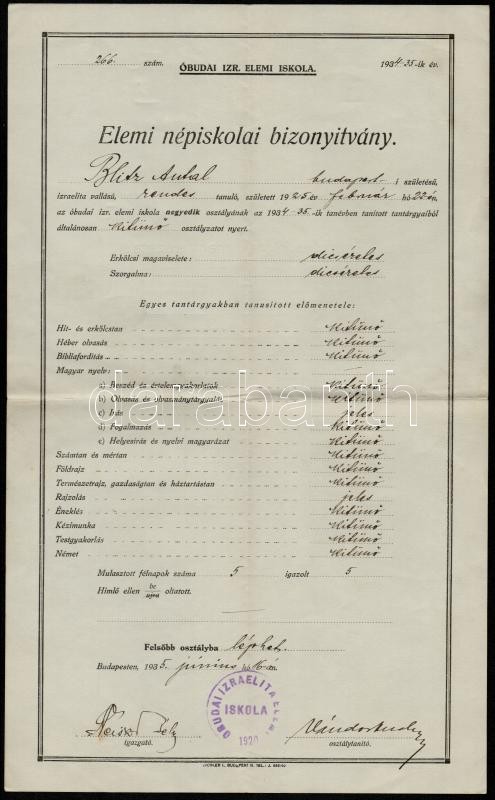 266. szám.
ÓBUDAI IZR. ELEMI ISKOLA.
1934-35-ik év.
Elemi népiskolai bizonyitvány.
Blitz Antal budapest-i születésű,
izraelita vallásu, rendes tanuló, született 1925 év február hó 22-én,
az óbudai izr. elemi iskola negyedik osztályának az 1934-35-ik tanévben tanitott tantárgyaiból
általánosan kitünő osztályzatot nyert.
Erkölcsi magaviselete: dicséretes
Szorgalma: dicséretes
Egyes tantárgyakban tanusitott előmenetele:
Hit- és erkölcstan kitünő
Héber olvasás kitünő
Bibliaforditás kitünő
Magyar nyelv:
a) Beszéd és értelemgyakorlatok kitünő
b) Olvasás és olvasmánytárgyalás kitünő
c) Irás jeles
d) Fogalmazás kitünő
e) Helyesirás és nyelvi magyarázat kitünő
Számtan és mértan kitünő
Földrajz kitünő
Természetrajz, gazdaságtan és háztartástan kitünő
Rajzolás jeles
Éneklés kitünő
Kézimunka kitünő
Testgyakorlás kitünő
Német kitünő
Mulasztott félnapok száma 5 igazolt 5
Himlő ellen be ujra oltatott.
Felsőbb osztályba léphet.
Budapesten, 1935. junius hó 16-án.
ÓBUDAI IZRAELITA ELEMI
ISKOLA
1920
igazgató.
osztálytanító.
darabanth